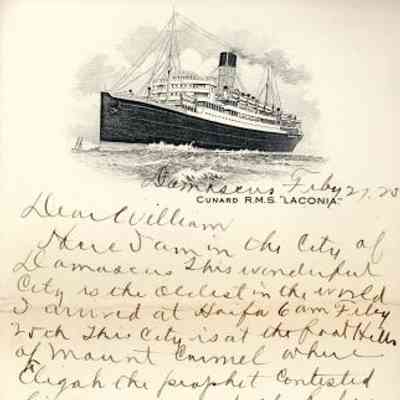 Damascus Feby 27. 23
CUNARD R.M.S. "LACONIA"
Dear William
Here I am in the City of
Damascus This wonderful
City is the oldest in the world
I arrived at Haifa 6 am Feby
This City is at the foot Hills
of Mount Carmel where
Eligah the prophet contested